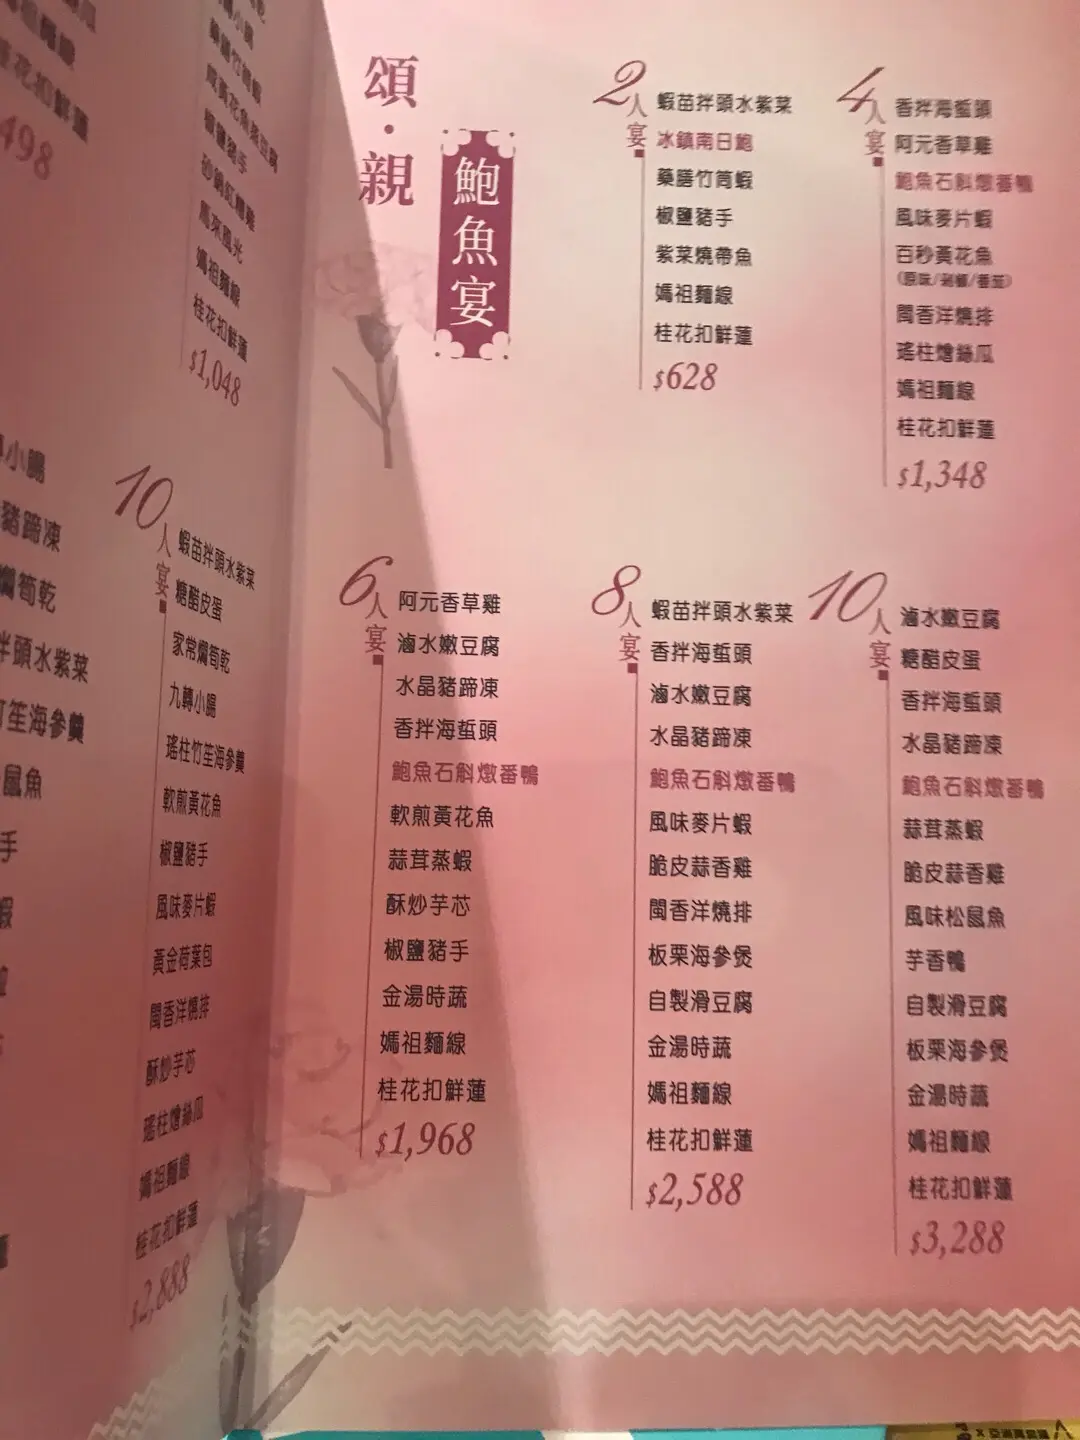 $1,048
桂花扣鮮蓮
媽祖麵線
鳳來風光
砂鍋紅糟雞
椒鹽豬手
498
小腸
豬蹄凍
燜筍乾
拌頭水紫菜
竹笙海參羹
鼠魚
手
蝦
10人宴
蝦苗拌頭水紫菜
糖醋皮蛋
家常燜筍乾
九轉小腸
瑤柱竹笙海參羹
軟煎黃花魚
椒鹽豬手
風味麥片蝦
黃金荷葉包
閩香洋燒排
酥炒芋芯
瑤柱燴絲瓜
媽祖麵線
桂花扣鮮蓮
$2,888
頌·親
鮑魚宴
2人宴
蝦苗拌頭水紫菜
冰鎮南日鮑
藥膳竹筒蝦
椒鹽豬手
紫菜燒帶魚
媽祖麵線
桂花扣鮮蓮
$628
4人宴
香拌海蜇頭
阿元香草雞
鮑魚石斛燉番鴨
風味麥片蝦
百秒黃花魚
(原味/剁椒/番茄)
閩香洋燒排
瑤柱燴絲瓜
媽祖麵線
桂花扣鮮蓮
$1,348
6人宴
阿元香草雞
滷水嫩豆腐
水晶豬蹄凍
香拌海蜇頭
鮑魚石斛燉番鴨
軟煎黃花魚
蒜茸蒸蝦
酥炒芋芯
椒鹽豬手
金湯時蔬
媽祖麵線
桂花扣鮮蓮
$1,968
8人宴
蝦苗拌頭水紫菜
香拌海蜇頭
滷水嫩豆腐
水晶豬蹄凍
鮑魚石斛燉番鴨
風味麥片蝦
脆皮蒜香雞
閩香洋燒排
板栗海參煲
自製滑豆腐
金湯時蔬
媽祖麵線
桂花扣鮮蓮
$2,588
10人宴
滷水嫩豆腐
糖醋皮蛋
香拌海蜇頭
水晶豬蹄凍
鮑魚石斛燉番鴨
蒜茸蒸蝦
脆皮蒜香雞
風味松鼠魚
芋香鴨
自製滑豆腐
板栗海參煲
金湯時蔬
媽祖麵線
桂花扣鮮蓮
$3,288